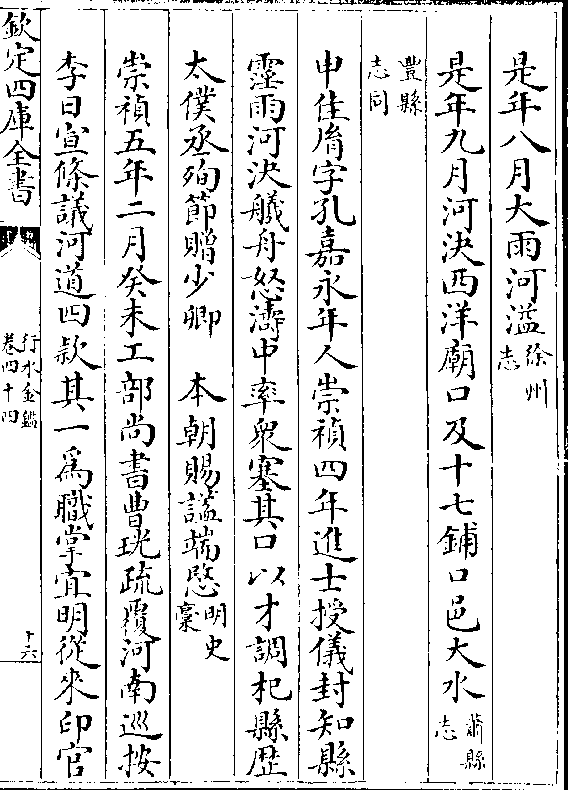 是年八月大雨河溢徐州志
是年九月河決西洋廟口及十七鋪口邑大水蕭縣志
豐縣志同
申佳𦙍字孔嘉永年人崇禎四年進士授儀封知縣
霪雨河決艤舟怒濤中率衆塞其口以才調杞縣歴
太僕丞殉節贈少卿　本朝賜諡端愍明史稾
崇禎五年二月癸未工部尚書曹珖疏覆河南巡按
李日宣條議河道四款其一為職掌宜明從來印官
欽定四庫全書
行水金鑑
卷四十四
十六